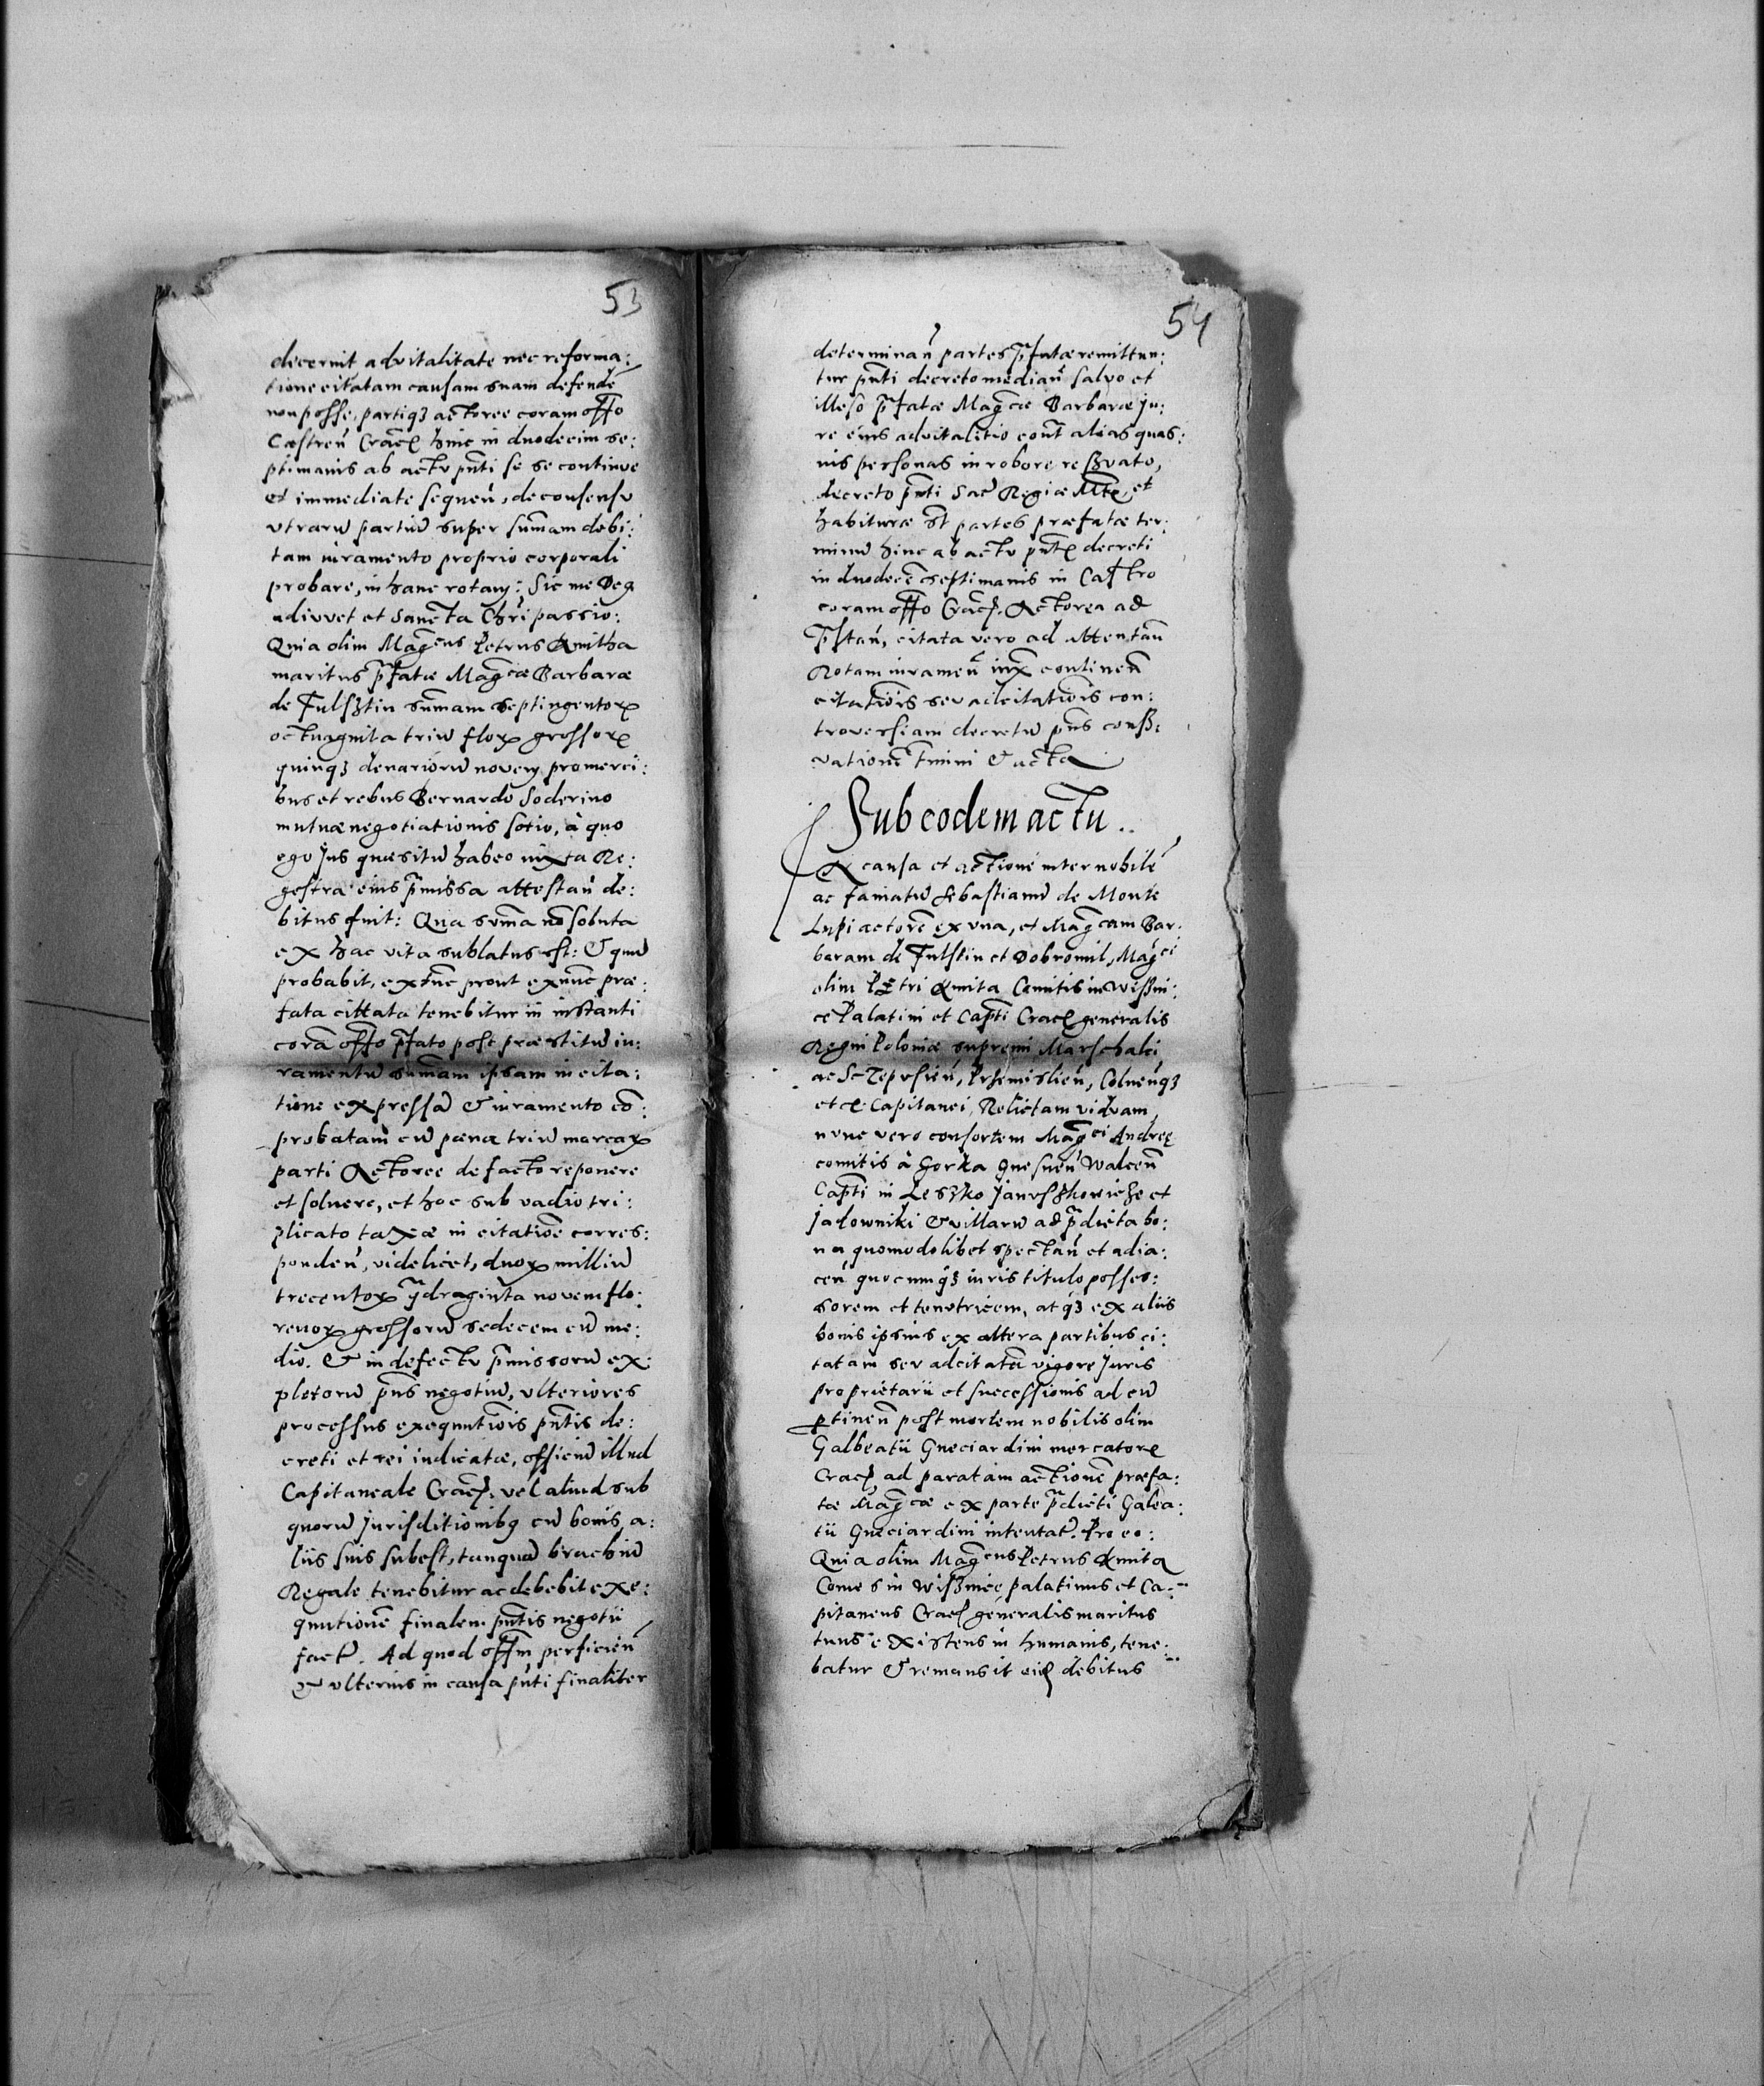 53
decernit advitalitate nec reforma:
tione citatam causam suam defendē
non posse, partiqȝ actoree coram offo
Castreń Cracȝ hinc in duodecim se:
ptimanis ab actv pñti se se continve
et immediate sequeń, de consensv
vtrarū partiū super sum̄am debi:
tam iuramento proprio corporali
probare, in hanc rotam: Sic me Deꝰ
adiuvet et Sancta Chri passio:
Quia olim Magcus Petrus Kmitha
maritus p̃fatæ Magcæ Barbaræ
de Fulsztin sum̄am septingentoꝝ
octuaginta triū floꝝ grossoꝝ
quinqȝ denariorū novem pro merci:
bus et rebus Bernardo Soderino
mutuæ negotiationis sotio, à quo
ego Jus quæsitū habeo iuxta Re:
gestra eius p̃missa attestań de:
bitus fuit: Qua sum̄a nō soluta
ex hac vita sublatus est: Et quū
probabit, extūc prout exnūc præ:
fata cittata tenebitur in instanti
corā offo p̃fato post præstitū iu:
ramentū sum̄am ipsam in cita:
tione expressā et iuramento cō:
probatam cū pœna triū marcaꝝ
parti Actoree de facto reponere
et soluere, et hoc sub vadio tri:
plicato taxæ in citatiōe corres:
pondeń, videlicet, duoꝝ milliū
trecentoꝝ q̃draginta novem flo:
renoꝝ grossorū sedecem cū me:
dio. Et in defectv p̃missorū ex:
pletorū p̃ns negotiū, vlteriores
processus exequutiōis pñtis de:
creti et rei iudicatæ, officiū illud
Capitaneale Cracȝ. vel aliud sub
quorū Jurisditionibꝰ cū bonis a:
liis suis subest, tanquā brachiū
Regale tenebitur ac debebit exe:
qutionē finalem pñtis negotii
facꝰ. Ad quod offm perficień
et vlterius in causa pñti finaliter
54
determinań partes p̃fatæ remittun:
tur pñti decreto mediań salvo et
illeso p̃fatæ Magcæ Barbaræ Ju:
re eius advitalitio cont̃ alias quas:
uis personas in robore reßvato,
decreto pñti Sacꝰ Regiæ Mt̃e, et
habituræ st̃ partes præfatæ ter:
minū hinc ab actv pñtꝭ decreti
in duodecē septimanis in Castro
coram offo Cracȝ. Actorea ad
p̃stań, citata vero ad attentań
Rotam iurameń iuꝝ contineń
citatiōis sev adcitatiōis con:
troversiam decretū p̃ns conß:
vationē tm̃ini et acta
Sub eodem actu..
Ex causa et actione inter nobilē
ac famatū Sebastianū de Monte
Lupi actorē ex vna, et Magcam Bar:
baram de Fulstin et Dobromil, Magci
olim Petri Kmita Comitis in Wißni:
ce Palatini et Capti Cracȝ generalis
Regni Poloniæ supremi Marschalci
ac Scepusień, Przemislień, Colneńqȝ
etc. Capitanei, Relictam viduam
nunc vero consortem Magci Andreę
comitis à Gorka Gnesneń Walceń
Capti in Leszko Janvszkowicze et
Jadowniki et villarū ad p̃dicta bo:
na quomodolibet spectań et adia:
ceń quocunqȝ iuris titulo posses:
sorem et tenutricem, atqȝ ex aliis
bonis ipsius ex altera partibus ci:
tatam sev adcitatā vigore Juris
proprietarii et successionis ad eū
ꝑtineń post mortem nobilis olim
Galbeatii Gueciardini mercatorꝭ
Cracȝ, ad paratam actionē præfa:
tæ Magcæ ex parte p̃dicti Galea:
tii Gueciardini intentatꝰ. Pro eo:
Quia olim Magcus Petrus Kmita
Comes in Wißnice palatinus et Ca:
pitaneus Cracȝ generalis maritus
tuus existens in humanis, tene:
batur et remansit eidȝ debitus